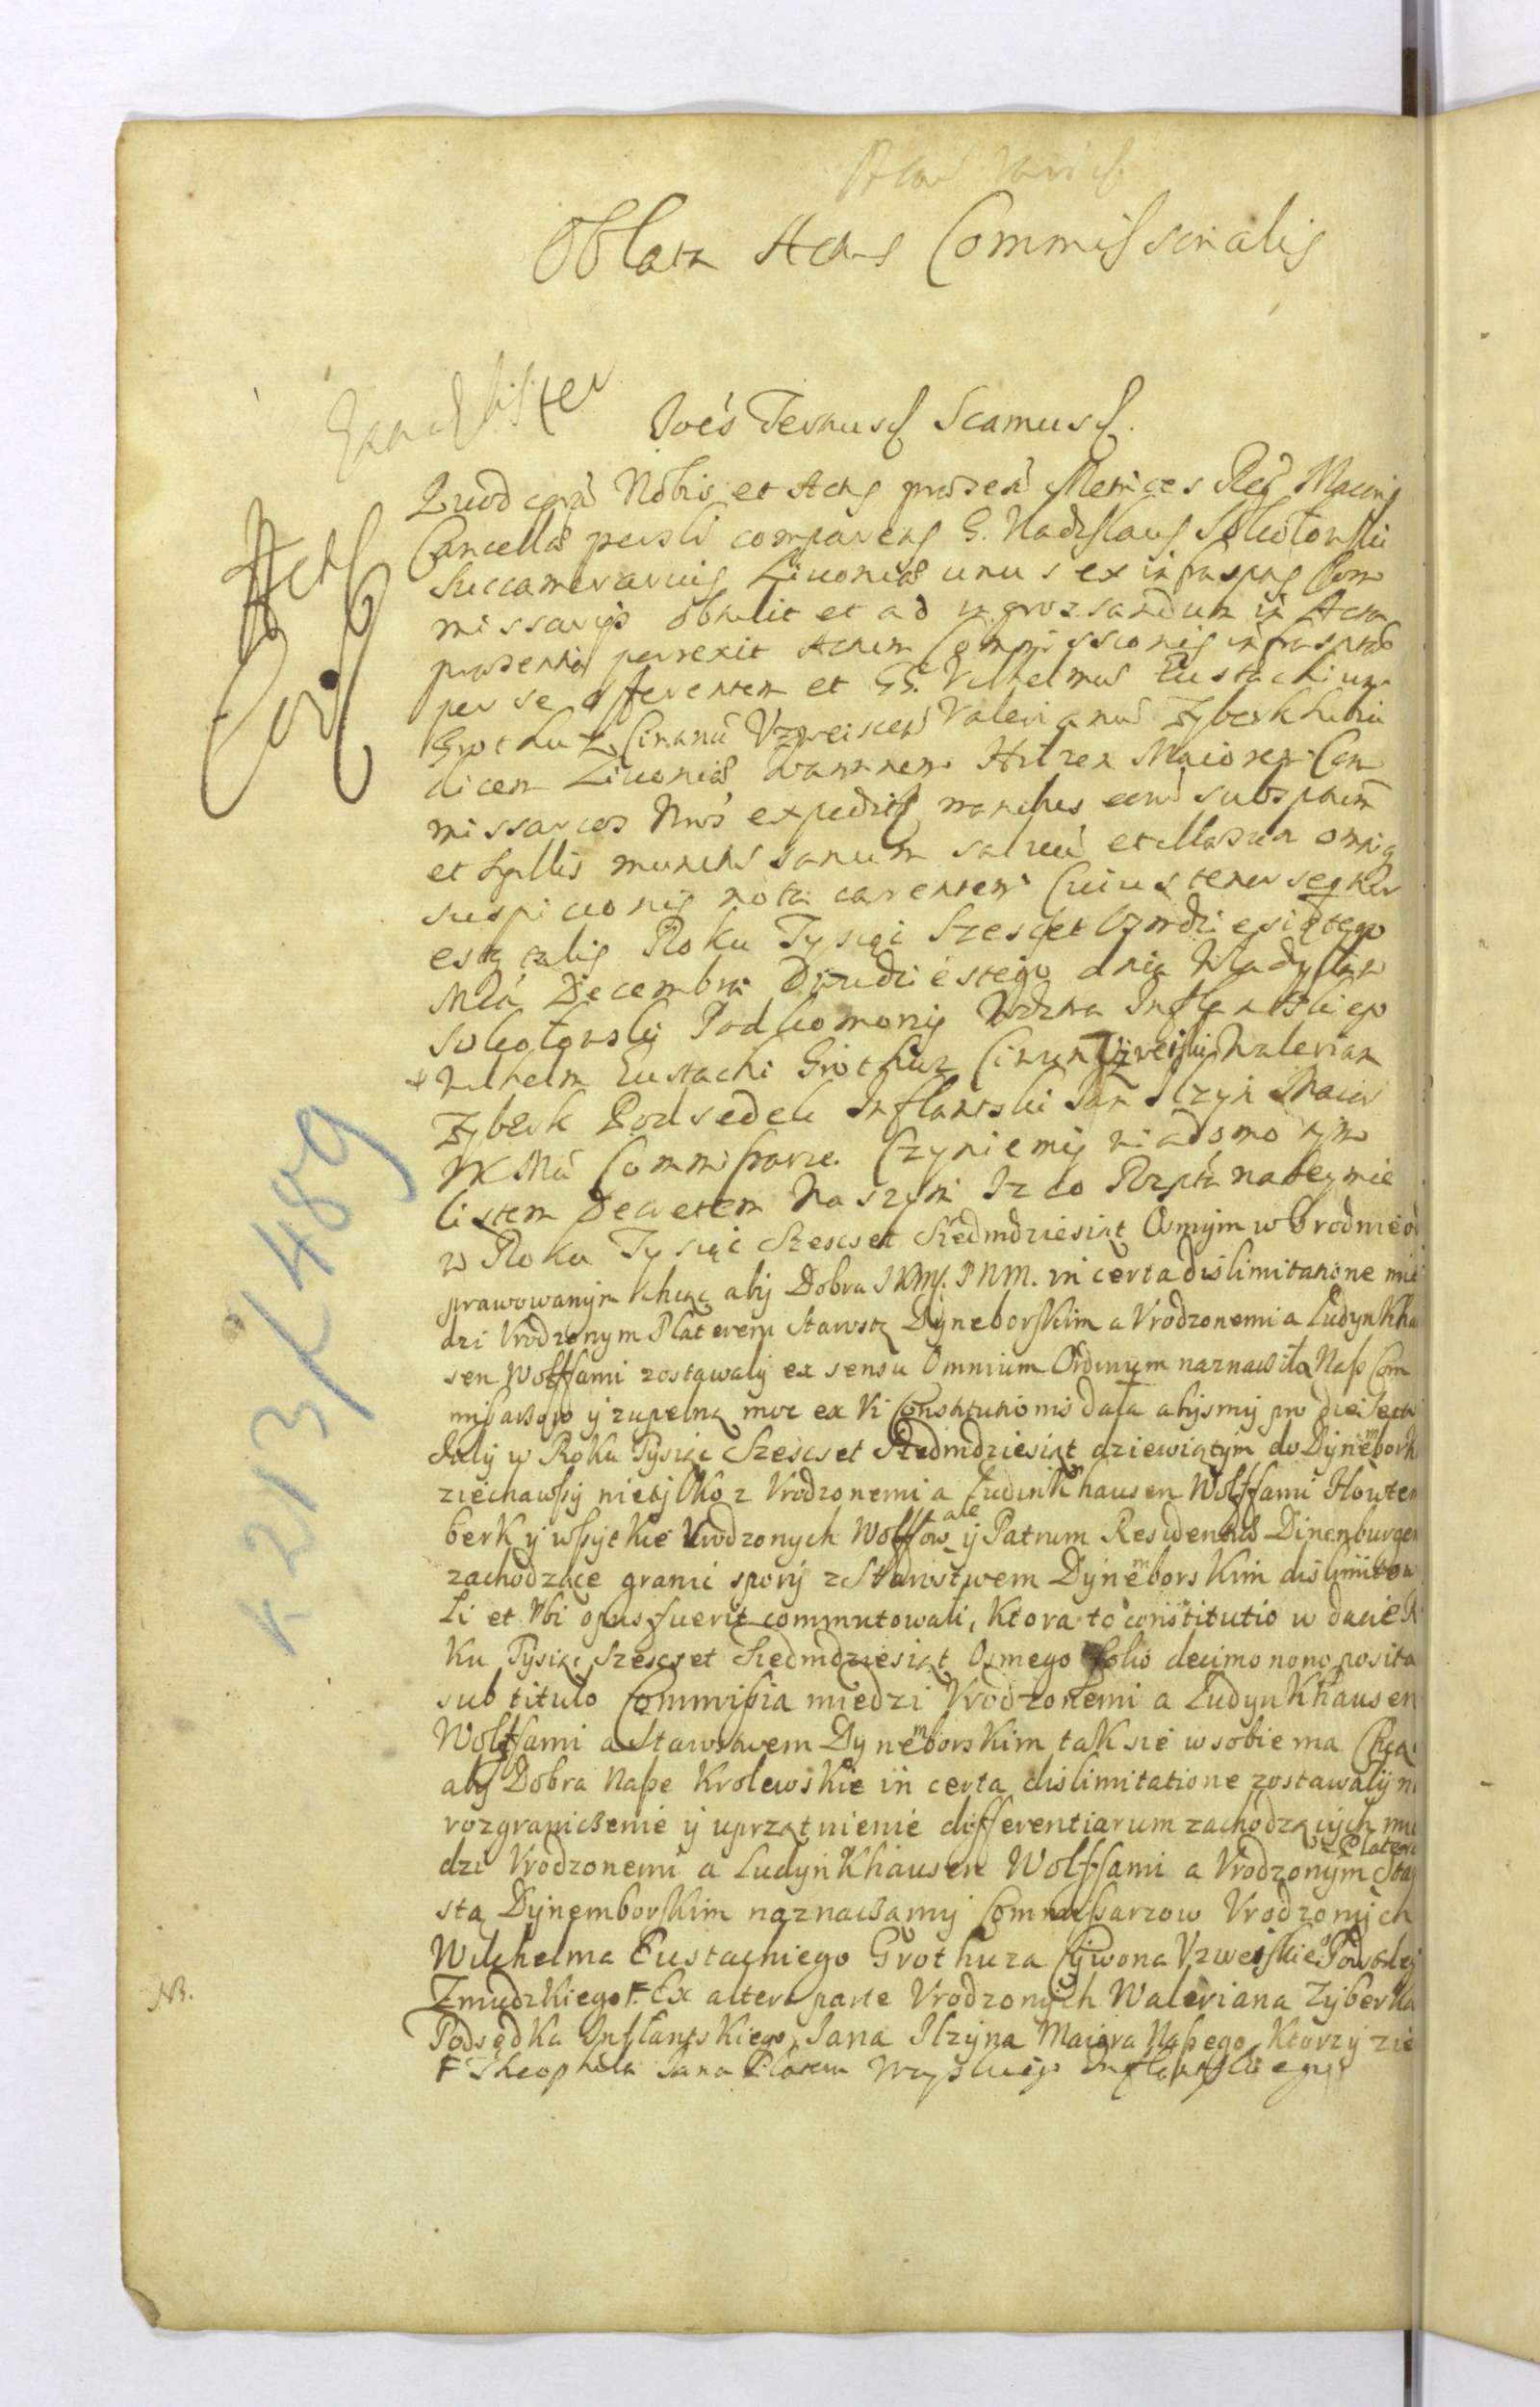 Oblata Actus Commissorialis
Joēs Tertius Scamus
Quod corā Nobis et Actis praesen Metrices Reg Maioris
Cancellā persli comparens G. Vladislaus Sokołowski
Succamerarius Livoniae unus ex infraspris Com
missarijs obtulit et ad ingrossandum in Acta
praesentia porrexit Actum Commissionis infrascrip
per se offerentem et GG. Vilhelmus Eustachium
Grothuz Civanū Vzweiscen Valerianū Zyberk Iudi
dicem Livoniae Ioannem Ilzen Maiorem Com
missarios Nrōs expeditū manibus eorū subscriptum
et sigillis munitū sanum salvū et illaesum omniq
suspicionis nota carentem Cuius tenor sequitur
estq talis Roku Tysiąc Szescset Osmdziesiątego
Mcá Decembra Dwudziestego dnia Władysław
Sokołowski Podkomorzy Wdztwa Inflantskiego
Wilhelm Eustachi Grothuz Ciwun Uzweiski Walerian
Zyberk Podsedek Inflantski Jan Ilzyn Maior
JKMci Commissarze. Czyniemy wiadomo tym
listem Decretem Naszym Iz co Rzpta na Seymie
w Roku Tysiąc Szescset Siedmdziesiąt Osmym w Grodnie od
prawowanym chcąc aby Dobra JKMs. PNM. in certa dislimitatione mie
dzi Vrodzonym Platerem Starostą Dyneborskim a Vrodzonemi a Ludynkhau
sen Wolffami zostawały ex sensu Omnium Ordinum naznaczyła Nas Com
missarzow y zupełną moc ex vi Constitutionis dała abysmy pro die
w Roku Tysiąc Szescset Siedmdziesiąt dziewiątym do Dynemborka
ziechawszy nietylko z Vrodzonemi a Ludinkhausen Wolffami Howten
berk y wszytkie Vrodzonych Wolffow ale y Patrum Residentiae Dinenburgen
zachodzące granic spory z Starostwem Dynemborskim dislimitowa
li et ubi opus fuerit commutowali, Ktora to constitutio w dacie R
ku Tysiąc Szescset Siedmdziesiąt Osmego folio decimo nono posita
sub titulo Commissia miedzi Vrodzonemi a Ludynkhausen
Wolffami a Starostwem Dynemborskim tak sie w sobie ma Chcąc
aby Dobra Nasze Krolewskie in certa dislimitatione zostawały n
rozgraniczenie y uprzątnienie differentiarum zachodzących mie
dzi Vrodzonemi a Ludynkhausen Wolffami a Vrodzonym Platere Staro
stą Dynemborskim naznaczamy Commissarzow Vrodzonych
Wilchelma Eustachiego Grothuza Cywona Vzweiskiego Podstoleg
Zmudzkiego F. Ex altera parte Vrodzonych Waleriana Zyberka
Podsędka Inflantskiego, Jana Ilzyna Maiora Naszego, Ktorzy zie
F Theophila Jana Platera Woyskiego Inflantskiego
NB.
K 213/489